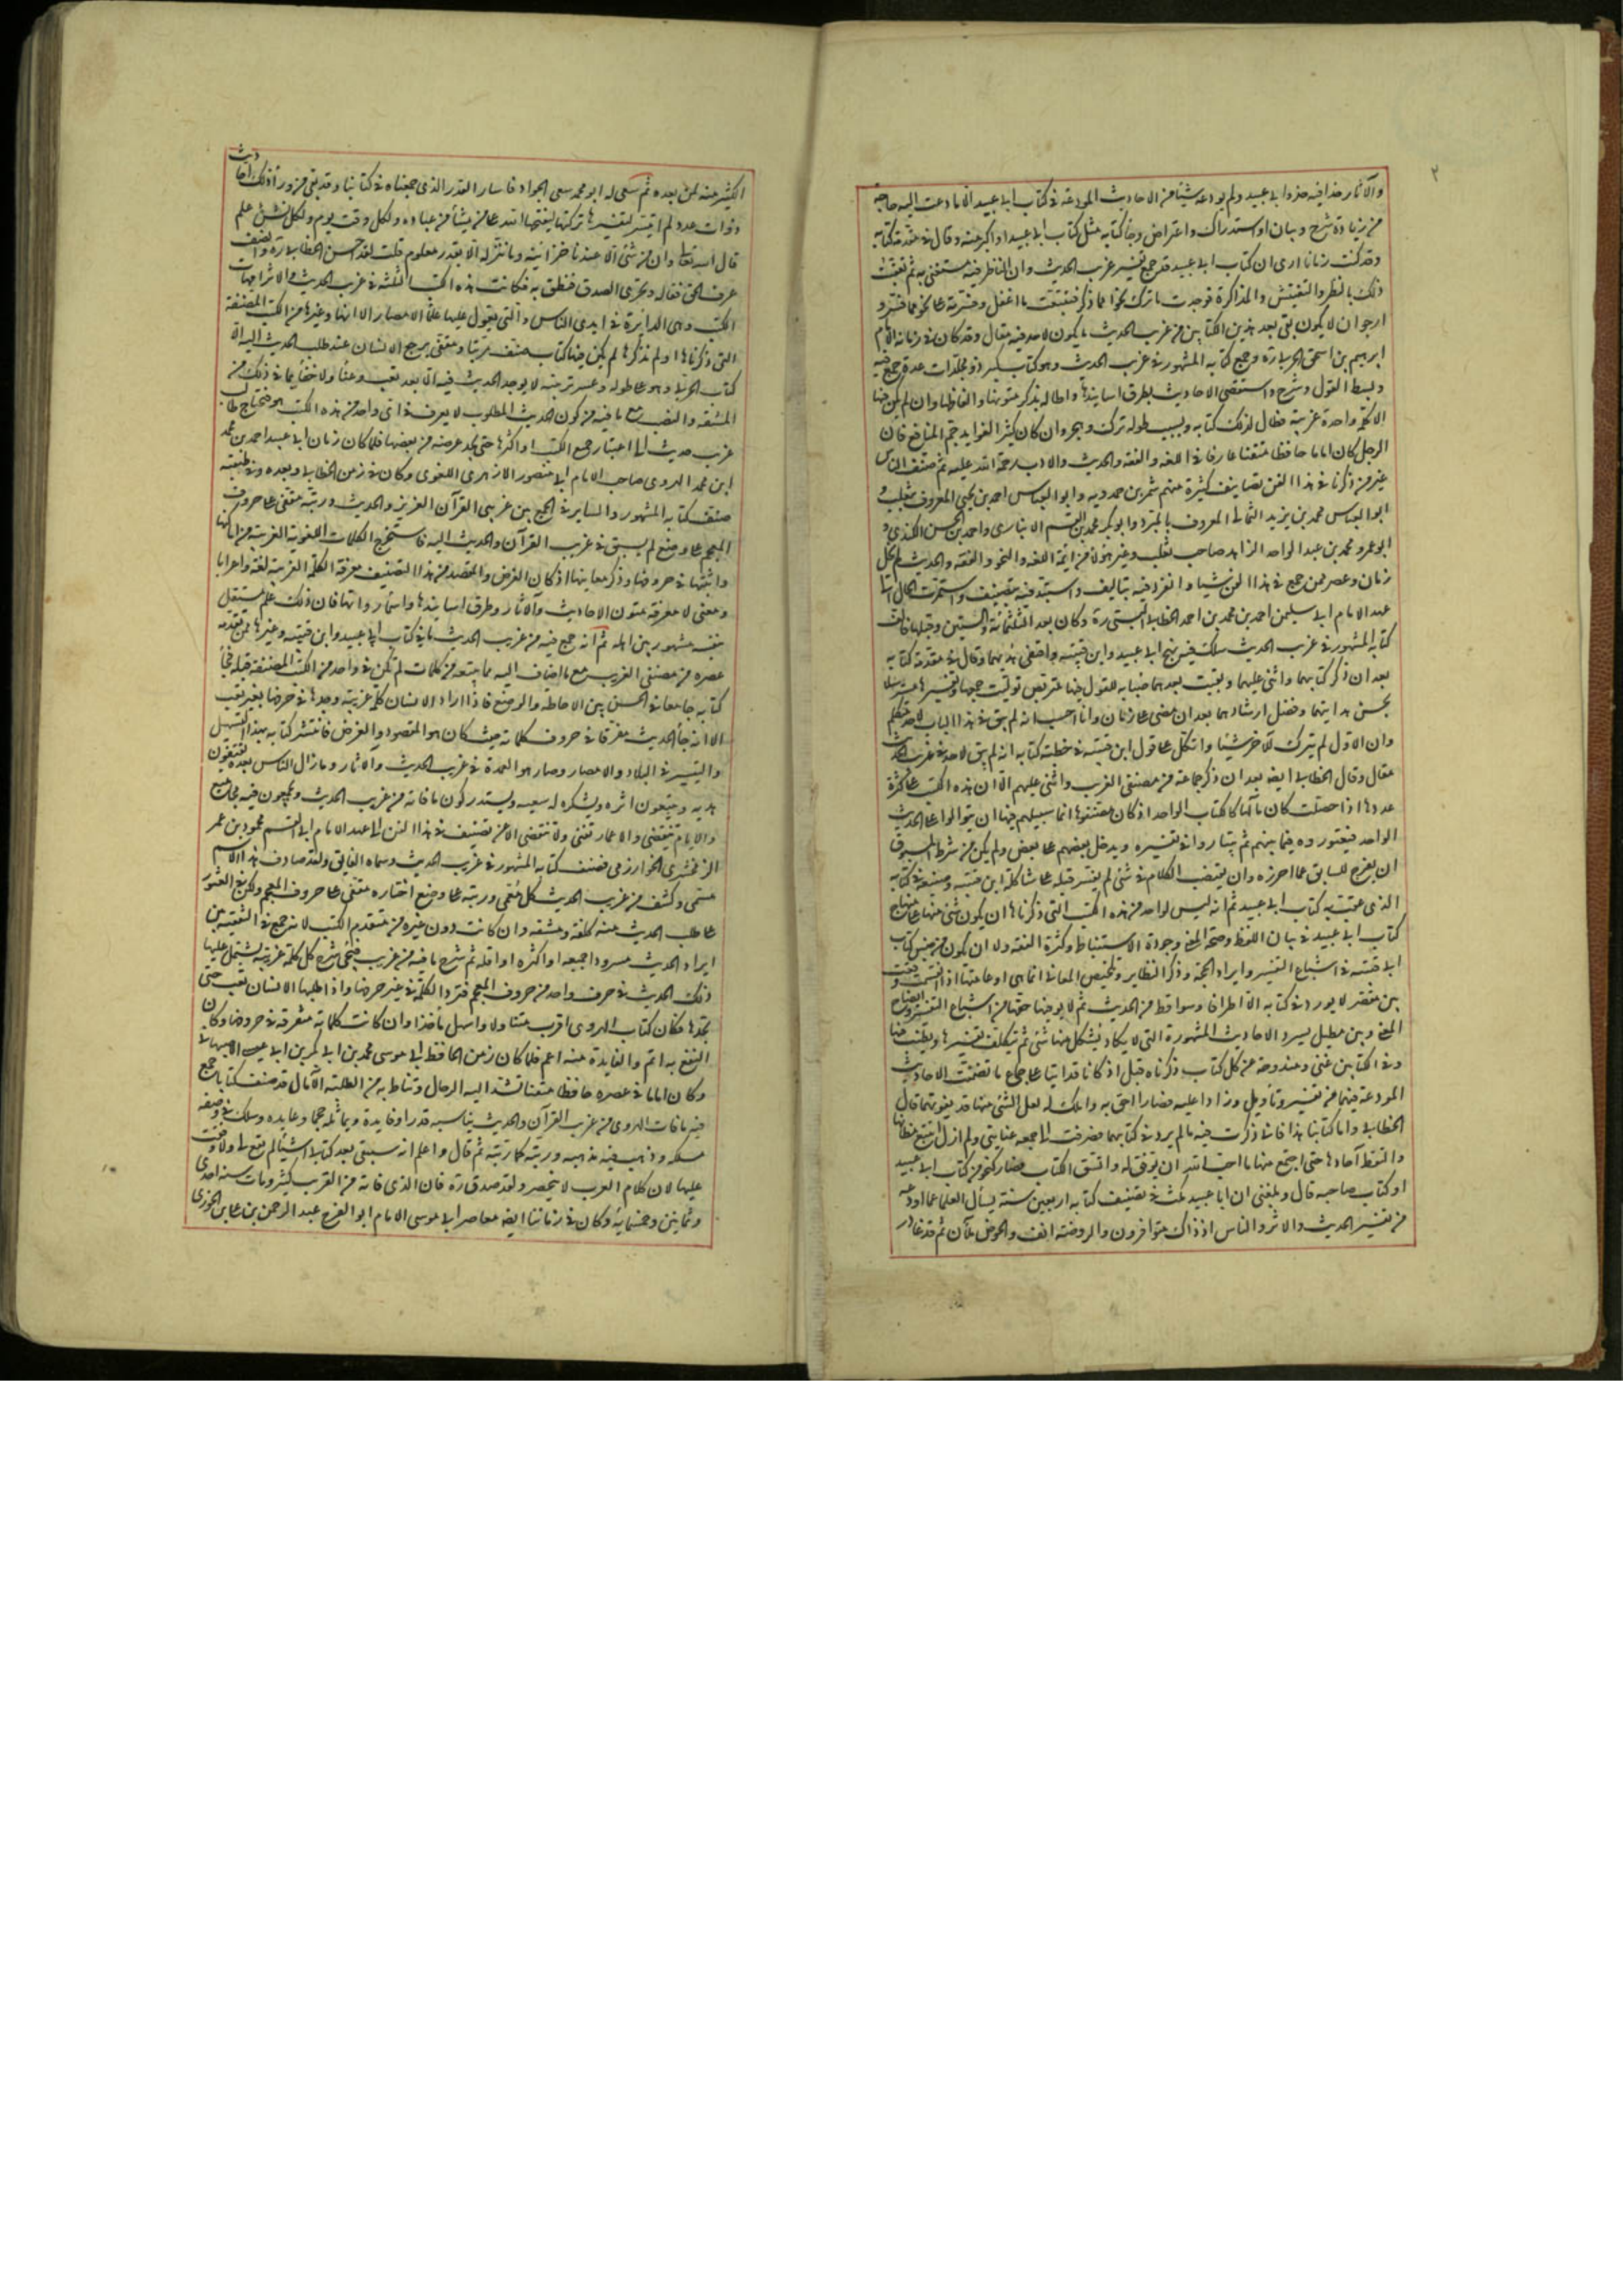 والآثار حذا فيه حذو ابى عبيد ولم يودعه شيئا من الاحاديث المودعة فى كتاب ابى عبيد الا ما دعت اليه حاجة
من زيادة شرح وبيان او استدراك واعتراض وجاء كتابه مثل كتاب ابى عبيد او اكبر منه وقال فى مقدمة كتابه
وقد كنت زمانا ارى ان كتاب ابى عبيد قد جمع تفسير غريب الحديث وان الناظر فيه مستغنى به ثم تعقبت
ذلك بالنظر والتفتيش والمذاكرة فوجدت ما ترك نحوا مما ذكر فتتبعت ما اغفل وفسرته على نحو مما فسر و
ارجو ان لا يكون بقى بعد هذين الكتابين من غريب الحديث ما يكون لاحد فيه مقال وقد كان فى زمانه الامام
ابرهيم بن اسحق الحربى ره وجمع كتابه المشهور فى غريب الحديث وهو كتاب كبير ذو مجلدات عدة جمع فيه
وبسط القول وشرح واستقصى الاحاديث بطرق اسانيدها واطاله بذكر متونها والفاظها وان لم يكن فيها
الا كلمة واحدة غريبة فطال لذلك كتابه وبسبب طوله ترك وهجر وان كان كثير الفوايد جم المنافع فان
الرجل كان اماما حافظا متقنا عارفا فى اللغة والفقه والحديث والادب رحمة الله عليه ثم صنف الناس
غير من ذكرنا فى هذا الفن تصانيف كثيرة منهم شمر بن حمدويه وابو العباس احمد بن يحيى المعروف بثعلب و
ابو العباس محمد بن يزيد الثمالى المعروف بالمبرد وابو بكر محمد بن القسم الانبارى واحمد بن الحسن الكندى و
ابو عمرو محمد بن عبد الواحد الزاهد صاحب ثعلب وغير هؤلاء من ايمة اللغة والنحو والفقه والحديث ولم يخل
زمان وعصر ممن جمع فى هذا الفن شيئا وانفرد فيه بتاليف واستبد فيه بتصنيف واستمرت الحال الى
عهد الامام ابى سليمن احمد بن محمد بن احمد الخطابى البستى ره وكان بعد الثلثمائة والستين وقبلها فالف
كتابه المشهور فى غريب الحديث سلك فيه نهج ابى عبيد وابن قتيبة واقتفى هديهما وقال فى مقدمة كتابه
بعد ان ذكر كتابيهما واثنى عليهما وبقيت بعدهما صبابة للقول فيها متربص توليت جمعها وتفسيرها مسترسلا
بحسن هدايتهما وفضل ارشادهما بعد ان مضى على زمان وانا احسب انه لم يبق فى هذا الباب لاحد متكلم
وان الاول لم يترك للآخر شيئا واتكل على قول ابن قتيبة فى خطبة كتابه انه لم يبق لاحد فى غريب الحديث
مقال وقال الخطابى ايضه بعد ان ذكر جماعة من مصنفى الغريب واثنى عليهم الا ان هذه الكتب على كثرة
عددها اذا حصلت كان مآلها كالكتاب الواحد اذ كان مصنفوها انما سبيلهم فيها ان يتوالوا على الحديث
الواحد فيعتوروه فيما بينهم ثم يتباروا فى تفسيره ويدخل بعضهم على بعض ولم يكن من شرط المسبوق
ان يفرج للسابق عما احرزه وان يقتضب الكلام فى شئ لم يفسر قبله على شاكلة ابن قتيبة وصنيعه فى كتابه
الذى عقب به كتاب ابى عبيد ثم انه ليس لواحد من هذه الكتب التى ذكرناها ان يكون شئ منها على منهاج
كتاب ابى عبيد فى بيان اللفظ وصحة المعنى وجودة الاستنباط وكثرة الفقه ولا ان يكون من جنس كتاب
ابن قتيبة فى اشباع التفسير وايراد الحجة وذكر النظاير وتخليص المعانى انما هى او عامتها اذا انقسمت وقعت
بين مقصر لا يورد فى كتابه الا اطرافا وسواقط من الحديث ثم لا يوفيها حقها من اشباع التفسير وايضاح
المعنى وبين مطيل يسرد الاحاديث المشهورة التى لا يكاد يشكل منها شئ ثم يتكلف تفسيرها ويطنب فيها
وفى الكتابين غنى ومندوحة عن كل كتاب ذكرناه قبل اذ كانا قد اتيا على جماع ما تضمنت الاحاديث
المودعة فيهما من تفسير وتأويل وزادا عليه فصارا احق به واملك له لعل الشئ منها قد يفوتهما قال
الخطابى واما كتابنا هذا فانى ذكرت فيه ما لم يرد فى كتابيهما فصرفت الى جمعه عنايتى ولم ازل اتتبع مظانها
والتقط آحادها حتى اجتمع منها ما احب الله ان يوفق له واتسق الكتاب فصار كنحو من كتاب ابى عبيد
او كتاب صاحبه قال وبلغنى ان ابا عبيد مكث فى تصنيف كتابه اربعين سنة يسأل العلما عما اودعه
من تفسير الحديث والاثر والناس اذ ذاك متوافرون والروضة انف والحوض ملآن ثم قد غادر
الكثير منه لمن بعده ثم سعى له ابو محمد سعى الجواد فاسأر القدر الذى جمعناه فى كتابنا وقد بقى من وراء ذلك احاديث
ذوات عدد لم اتيسر لتفسيرها تركتها ليفتحها الله على من يشاء من عباده ولكل وقت يوم ولكل نشئ علم
قال الله تعالى وان من شئ الا عندنا خزائنه وما ننزله الا بقدر معلوم قلت لقد احسن الخطابى ره وانصف
عرف الحق فقاله وتحرى الصدق فنطق به فكانت هذه الكتب الثلثة فى غريب الحديث والاثر امهات
الكتب وهى الدايرة فى ايدى الناس والتى يعول عليها علماء الامصار الا انها وغيرها من الكتب المصنفة
التى ذكرناها او لم نذكرها لم يكن فيها كتاب صنف مرتبا ومقفى يرجع الانسان عند طلب الحديث اليه الا
كتاب الحربى وهو على طوله وعسر ترتيبه لا يوجد الحديث فيه الا بعد تعب وعناء ولا خفاء بما فى ذلك من
المشقة والنصب مع ما فيه من كون الحديث المطلوب لا يعرف فى اى واحد من هذه الكتب هو فيحتاج طالب
غريب حديث الى اعتبار جميع الكتب او اكثرها حتى يجد غرضه من بعضها فلما كان زمان ابى عبيد احمد بن محمد
ابن محمد الهروى صاحب الامام ابى منصور الازهرى اللغوى وكان فى زمن الخطابى وبعده وفى طبقته
صنف كتابه المشهور والساير فى الجمع بين غريبى القرآن العزيز والحديث ورتبه مقفى على حروف
المعجم على وضع لم يسبق فى غريب القرآن والحديث اليه فاستخرج الكلمات اللغوية الغريبة من اماكنها
واثبتها فى حروفها وذكر معانيها اذ كان الغرض والمقصد من هذا التصنيف معرفة الكلمة الغريبة لغة واعرابا
ومعنى لا معرفة متون الاحاديث والآثار وطرق اسانيدها واسماء رواتها فان ذلك علم مستقل
بنفسه مشهور بين اهله ثم انه جمع فيه من غريب الحديث ما فى كتاب ابى عبيد وابن قتيبة وغيرهما ممن تقدمه
عصره من مصنفى الغريب مع ما اضاف اليه مما تتبعه من كلمات لم تكن فى واحد من الكتب المصنفة قبله فجاء
كتابه جامعا فى الحسن بين الاحاطة والوضع فاذا اراد الانسان كلمة غريبة وجدها فى حرفها بغير تعب
الا انه جاء الحديث مفرقا فى حروف كلماته حيث كان هو المقصود والغرض فانتشر كتابه بهذا التسهيل
والتيسير فى البلاد والامصار وصار هو العمدة فى غريب الحديث والآثار وما زال الناس بعده يقتفون
هديه ويتبعون اثره ويشكرون له سعيه ويستدركون ما فاته من غريب الحديث ويجمعون فيه مجاميع
والايام تنقضى والاعمار تفنى ولا تنقضى الا عن تصنيف فى هذا الفن الى عهد الامام ابى القسم محمود بن عمر
الزمخشرى الخوارزمى فصنف كتابه المشهور فى غريب الحديث وسماه الفايق ولقد صادف هذا الاسم
مسمى وكشف من غريب الحديث كل معمى ورتبه على وضع اختاره مقفى على حروف المعجم ولكن فى العثور
على طلب الحديث منه كلفة ومشقة وان كانت دون غيره من متقدم الكتب لانه جمع فى التقفية بين
ايراد الحديث مسرودا جميعه او اكثره او اقله ثم شرح ما فيه من غريب فيجئ شرح كل كلمة غريبة يشتمل عليها
ذلك الحديث فى حرف واحد من حروف المعجم فترد الكلمة فى غير حرفها واذا طلبها الانسان تعب حتى
يجدها فكان كتاب الهروى اقرب متناولا واسهل مأخذا وان كانت كلماته متفرقة فى حروفها وكان
النفع به اتم والفايدة منه اعم فلما كان زمن الحافظ ابى موسى محمد بن ابى بكر بن ابى عيسى الاصبهانى
وكان اماما فى عصره حافظا متقنا تشد اليه الرحال وتناط به من الطلبة الآمال قد صنف كتابا جمع
فيه ما فات الهروى من غريب القرآن والحديث يناسبه قدرا وفايدة ويماثله حجما وعايده وسلك فى وضعه
مسلكه وذهب فيه مذهبه ورتبه كما رتبه ثم قال واعلم انه سيبقى بعد كتابى اشيا لم تقع لى ولا وقفت
عليها لان كلام العرب لا ينحصر ولقد صدق ره فان الذى فاته من الغريب كثير ومات سنه احدى
وثمانين وخمسمايه وكان فى زماننا ايضه معاصر ابى موسى الامام ابو الفرج عبد الرحمن بن على بن الجوزى